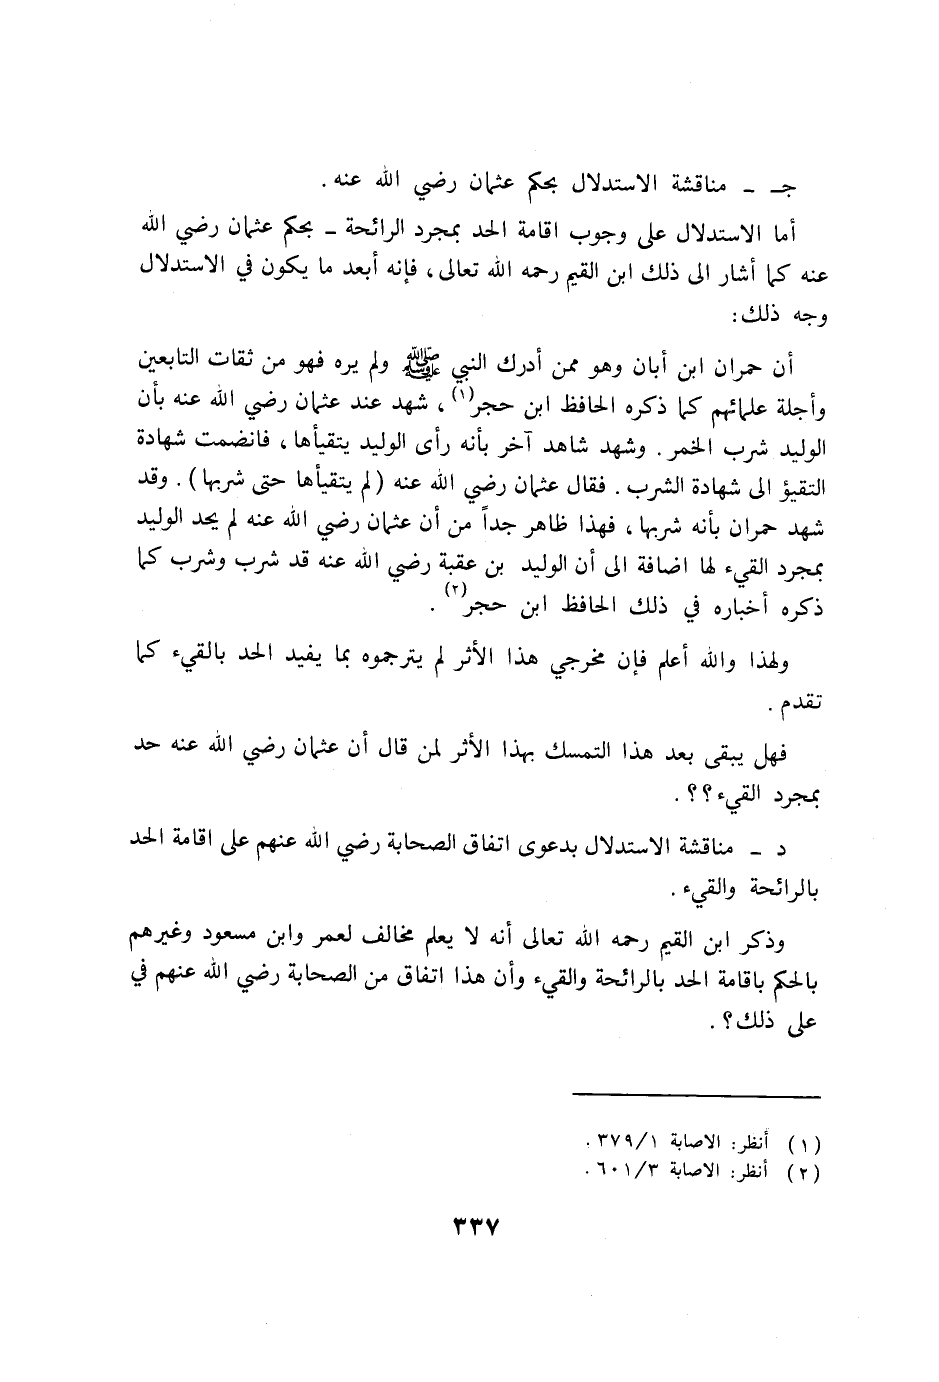 جـ ـ مناقشة الاستدلال بحكم عثمان رضي الله عنه .
أما الاستدلال على وجوب اقامة الحد بمجرد الرائحة ـ بحكم عثمان رضي الله
عنه كما أشار الى ذلك ابن القيم رحمه الله تعالى ، فإنه أبعد ما يكون في الاستدلال
وجه ذلك :
أن حمران ابن أبان وهو ممن أدرك النبي ﷺ ولم يره فهو من ثقات التابعين
وأجلة علمائهم كما ذكره الحافظ ابن حجر(١) ، شهد عند عثمان رضي الله عنه بأن
الوليد شرب الخمر . وشهد شاهد آخر بأنه رأى الوليد يتقيأها ، فانضمت شهادة
التقيؤ الى شهادة الشرب . فقال عثمان رضي الله عنه (لم يتقيأها حتى شربها) . وقد
شهد حمران بأنه شربها ، فهذا ظاهر جداً من أن عثمان رضي الله عنه لم يحد الوليد
بمجرد القيء لها اضافة الى أن الوليد بن عقبة رضي الله عنه قد شرب وشرب كما
ذكره أخباره في ذلك الحافظ ابن حجر(٢) .
ولهذا والله أعلم فإن مخرجي هذا الأثر لم يترجموه بما يفيد الحد بالقيء كما
تقدم .
فهل يبقى بعد هذا التمسك بهذا الأثر لمن قال أن عثمان رضي الله عنه حد
بمجرد القيء ؟؟ .
د ـ مناقشة الاستدلال بدعوى اتفاق الصحابة رضي الله عنهم على اقامة الحد
بالرائحة والقيء .
وذكر ابن القيم رحمه الله تعالى أنه لا يعلم مخالف لعمر وابن مسعود وغيرهم
بالحكم باقامة الحد بالرائحة والقيء وأن هذا اتفاق من الصحابة رضي الله عنهم في
على ذلك ؟ .
(١) أنظر : الاصابة ٣٧٩/١ .
(٢) أنظر : الاصابة ٦٠١/٣ .
٣٣٧